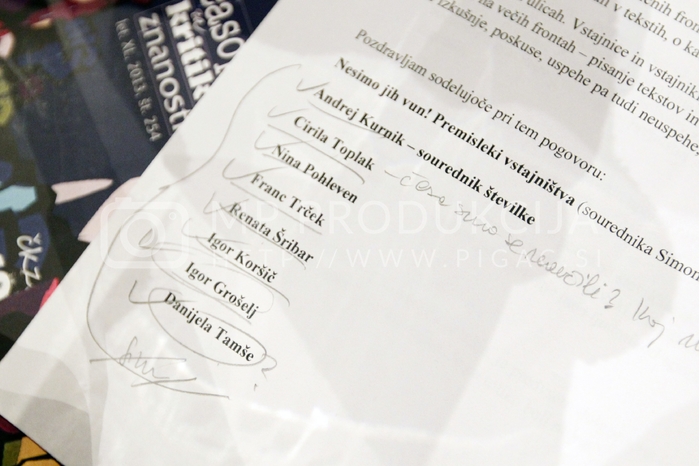 časopis
za
kritiko
znanosti
let. XL, 2013, št. 254
ČKZ
ulicah. Vstajnice in vstajniki
v tekstih, o ka
na večih frontah – pisanje tekstov in
izkušnje, poskuse, uspehe pa tudi neuspehe,
Pozdravljam sodelujoče pri tem pogovoru:
Nesimo jih vun! Premisleki vstajništva (sourednika Simon
Andrej Kurnik – sourednik številke
Cirila Toplak
Nina Pohleven
Franc Trček
Renata Šribar
Igor Koršič
Igor Grošelj
Danijela Tamše
?
MP PRODUKCIJA
HTTP://WWW.PIGAC.SI